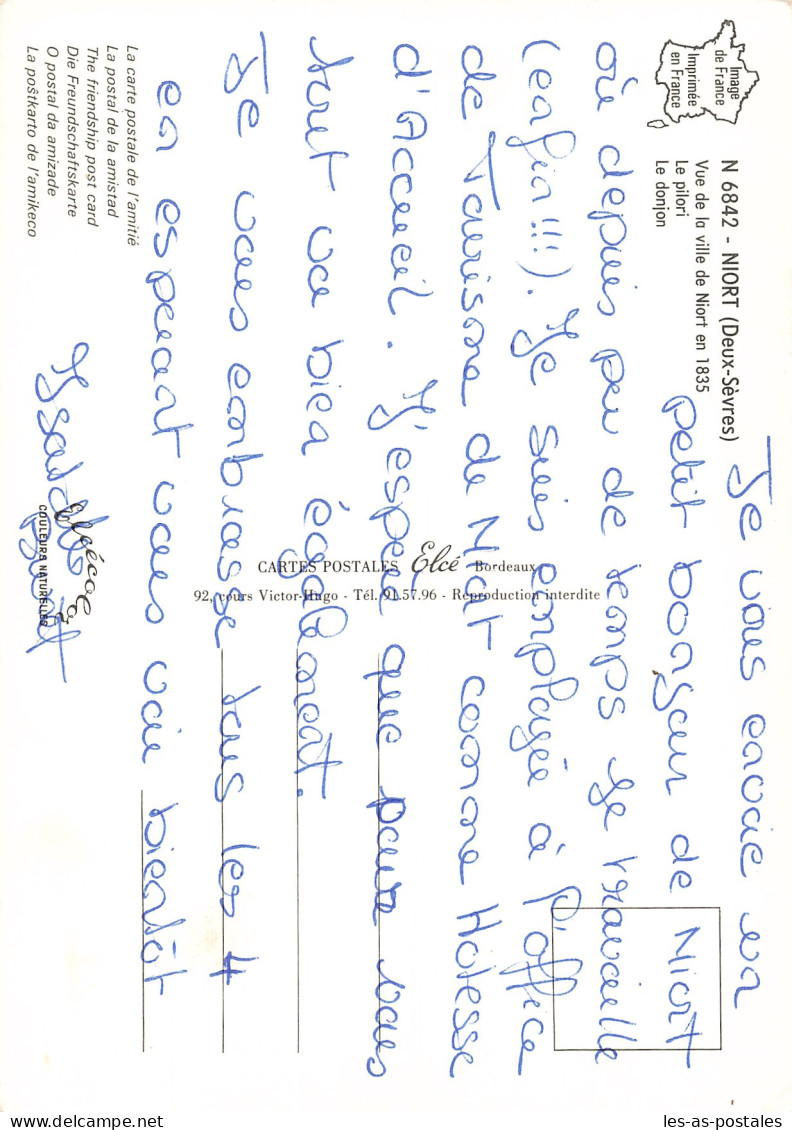 Image
de France
Imprimée
en France
N 6842 - NIORT (Deux-Sèvres)
Vue de la ville de Niort en 1835
Le pilori
Le donjon
Je vous envoie un
petit bonjour de Niort
où depuis peu de temps je travaille
(enfin!!!). Je suis employée à l'office
de Tourisme de Niort comme Hotesse
d'Accueil. J'espère que pour vous
tout va bien également.
Je vous embrasse tous les 4
en espérant vous voir bientôt
Isabelle
CARTES POSTALES Elcé Bordeaux
92, cours Victor-Hugo - Tél. 91.57.96 - Reproduction interdite
La carte postale de l'amitié
La postal de la amistad
The friendship post card
Die Freundschaftskarte
O postal da amizade
La poŝtkarto de l'amikeco
COULEURS NATURELLES
les-as-postales - delcampe.net